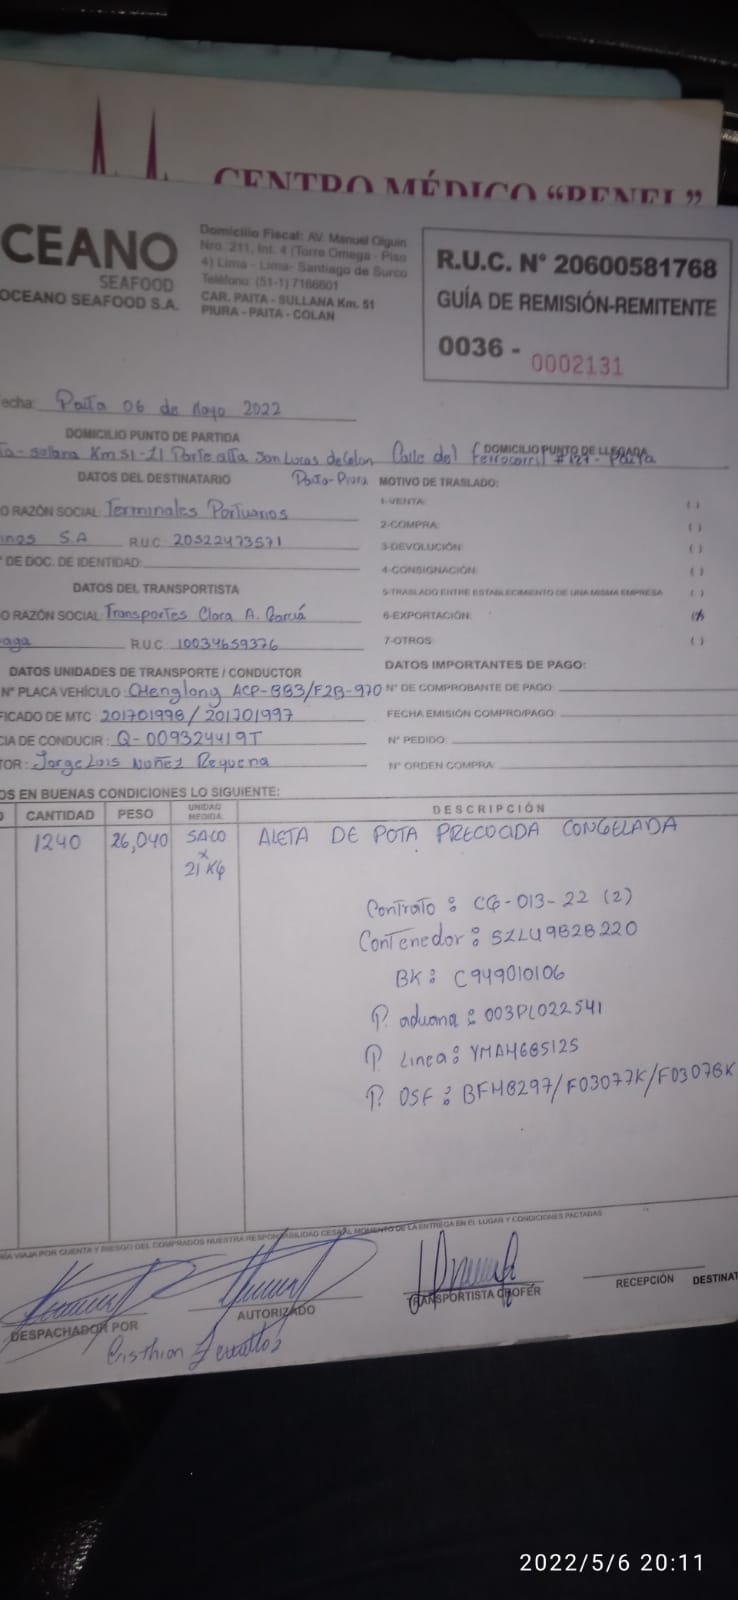 CENTRO MÉDICO "RENEL"
CEANO
SEAFOOD
OCEANO SEAFOOD S.A.
Domicilio Fiscal: AV. Manuel Olguin
Nro. 211, Int. 4 (Torre Omega - Piso
4) Lima - Lima- Santiago de Surco
Teléfono: (51-1) 7166601
CAR. PAITA - SULLANA Km. 51
PIURA - PAITA - COLAN
R.U.C. N° 20600581768
GUÍA DE REMISIÓN-REMITENTE
0036 - 0002131
echa: Paita 06 de Mayo 2022
DOMICILIO PUNTO DE PARTIDA
DOMICILIO PUNTO DE LLEGADA
ta-sullana Km 51-21 Parte alta San Lucas de Colan
Calle del Ferrocarril #127- Paita
DATOS DEL DESTINATARIO Paita-Piura
MOTIVO DE TRASLADO:
O RAZÓN SOCIAL: Terminales Portuarios
inos S.A R.U.C 20522473571
° DE DOC. DE IDENTIDAD:
1-VENTA: ( )
2-COMPRA: ( )
3-DEVOLUCIÓN: ( )
4-CONSIGNACIÓN: ( )
5-TRASLADO ENTRE ESTABLECIMIENTO DE UNA MISMA EMPRESA ( )
6-EXPORTACIÓN:
7-OTROS: ( )
DATOS DEL TRANSPORTISTA
O RAZÓN SOCIAL: Transportes Clara A. Garciá
R.U.C 10034659376
DATOS UNIDADES DE TRANSPORTE / CONDUCTOR
N° PLACA VEHÍCULO: CHenglong ACP-883/F2B-970
FICADO DE MTC: 201701998 / 201701997
CIA DE CONDUCIR: Q-009324419T
TOR: Jorge Luis Nuñez Requena
DATOS IMPORTANTES DE PAGO:
N° DE COMPROBANTE DE PAGO:
FECHA EMISIÓN COMPRO/PAGO:
N° PEDIDO:
N° ORDEN COMPRA:
OS EN BUENAS CONDICIONES LO SIGUIENTE:
CANTIDAD PESO UNIDAD MEDIDA DESCRIPCIÓN
1240 26,040 SACO ALETA DE POTA PRECOCIDA CONGELADA
x
21 KG
Contrato: CG-013-22 (2)
Contenedor: SZLU9828220
BK: C949010106
P. aduana: 003PL022541
P. Linea: YMAH685125
P. OSF: BFH8297/F03077K/F03078K
RÍA VIAJA POR CUENTA Y RIESGO DEL COMPRADOS NUESTRA RESPONSABILIDAD CESA AL MOMENTO DE LA ENTREGA EN EL LUGAR Y CONDICIONES PACTADAS
DESPACHADOR POR
AUTORIZADO
TRANSPORTISTA CHOFER
RECEPCIÓN DESTINAT
2022/5/6 20:11